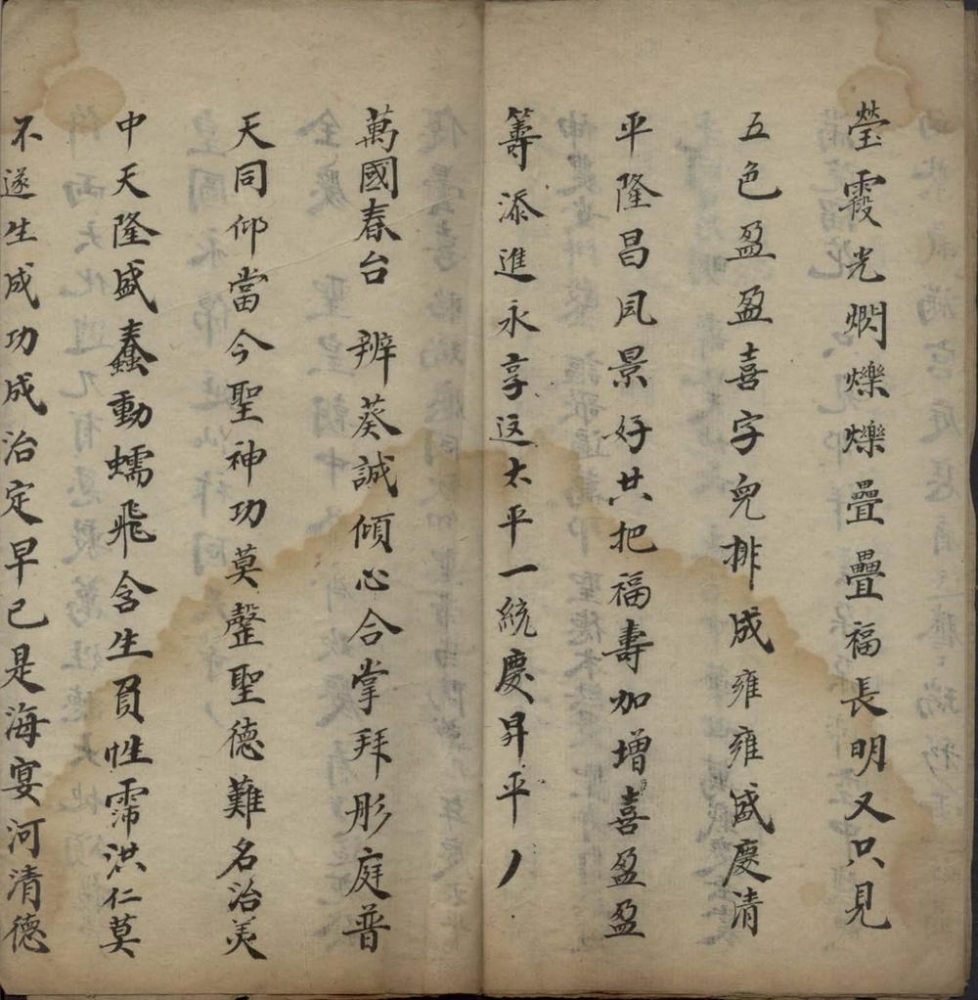 瑩霞光燗爍爍疊疊福長明又只見
五色盈盈喜字兒排成雍雍盛慶清
平隆昌凨景好共把福壽加增喜盈盈
筹添進永享这太平一統慶昇平
萬國春台　辨葵誠傾心合掌拜彤庭普
天同仰當今聖神功莫罄聖德難名治美
中天隆盛蠢動蠕飛含生負性霈洪仁莫
不遂生成功成治定早已是海宴河清德